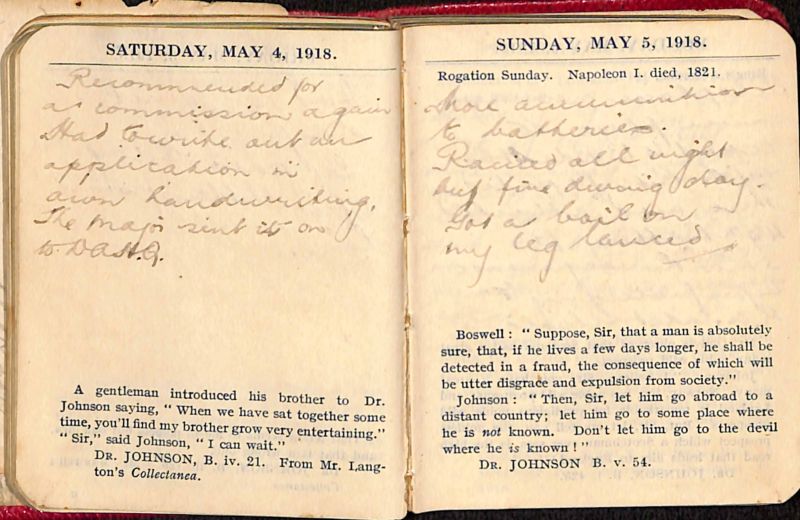 SATURDAY, MAY 4, 1918.
Recommended for
a commission again
Had to write out an
application in
own handwriting.
The Major sent it on
to D.A.H.Q.
A gentleman introduced his brother to Dr.
Johnson saying, " When we have sat together some
time, you'll find my brother grow very entertaining."
" Sir," said Johnson, " I can wait."
DR. JOHNSON, B. iv. 21. From Mr. Lang-
ton's Collectanea.
SUNDAY, MAY 5, 1918.
Rogation Sunday. Napoleon I. died, 1821.
More ammunition
to batteries.
Rained all night
but fine during day.
Got a boil on
my leg lanced
Boswell : " Suppose, Sir, that a man is absolutely
sure, that, if he lives a few days longer, he shall be
detected in a fraud, the consequence of which will
be utter disgrace and expulsion from society."
Johnson : " Then, Sir, let him go abroad to a
distant country; let him go to some place where
he is not known. Don't let him go to the devil
where he is known ! "
DR. JOHNSON B. v. 54.